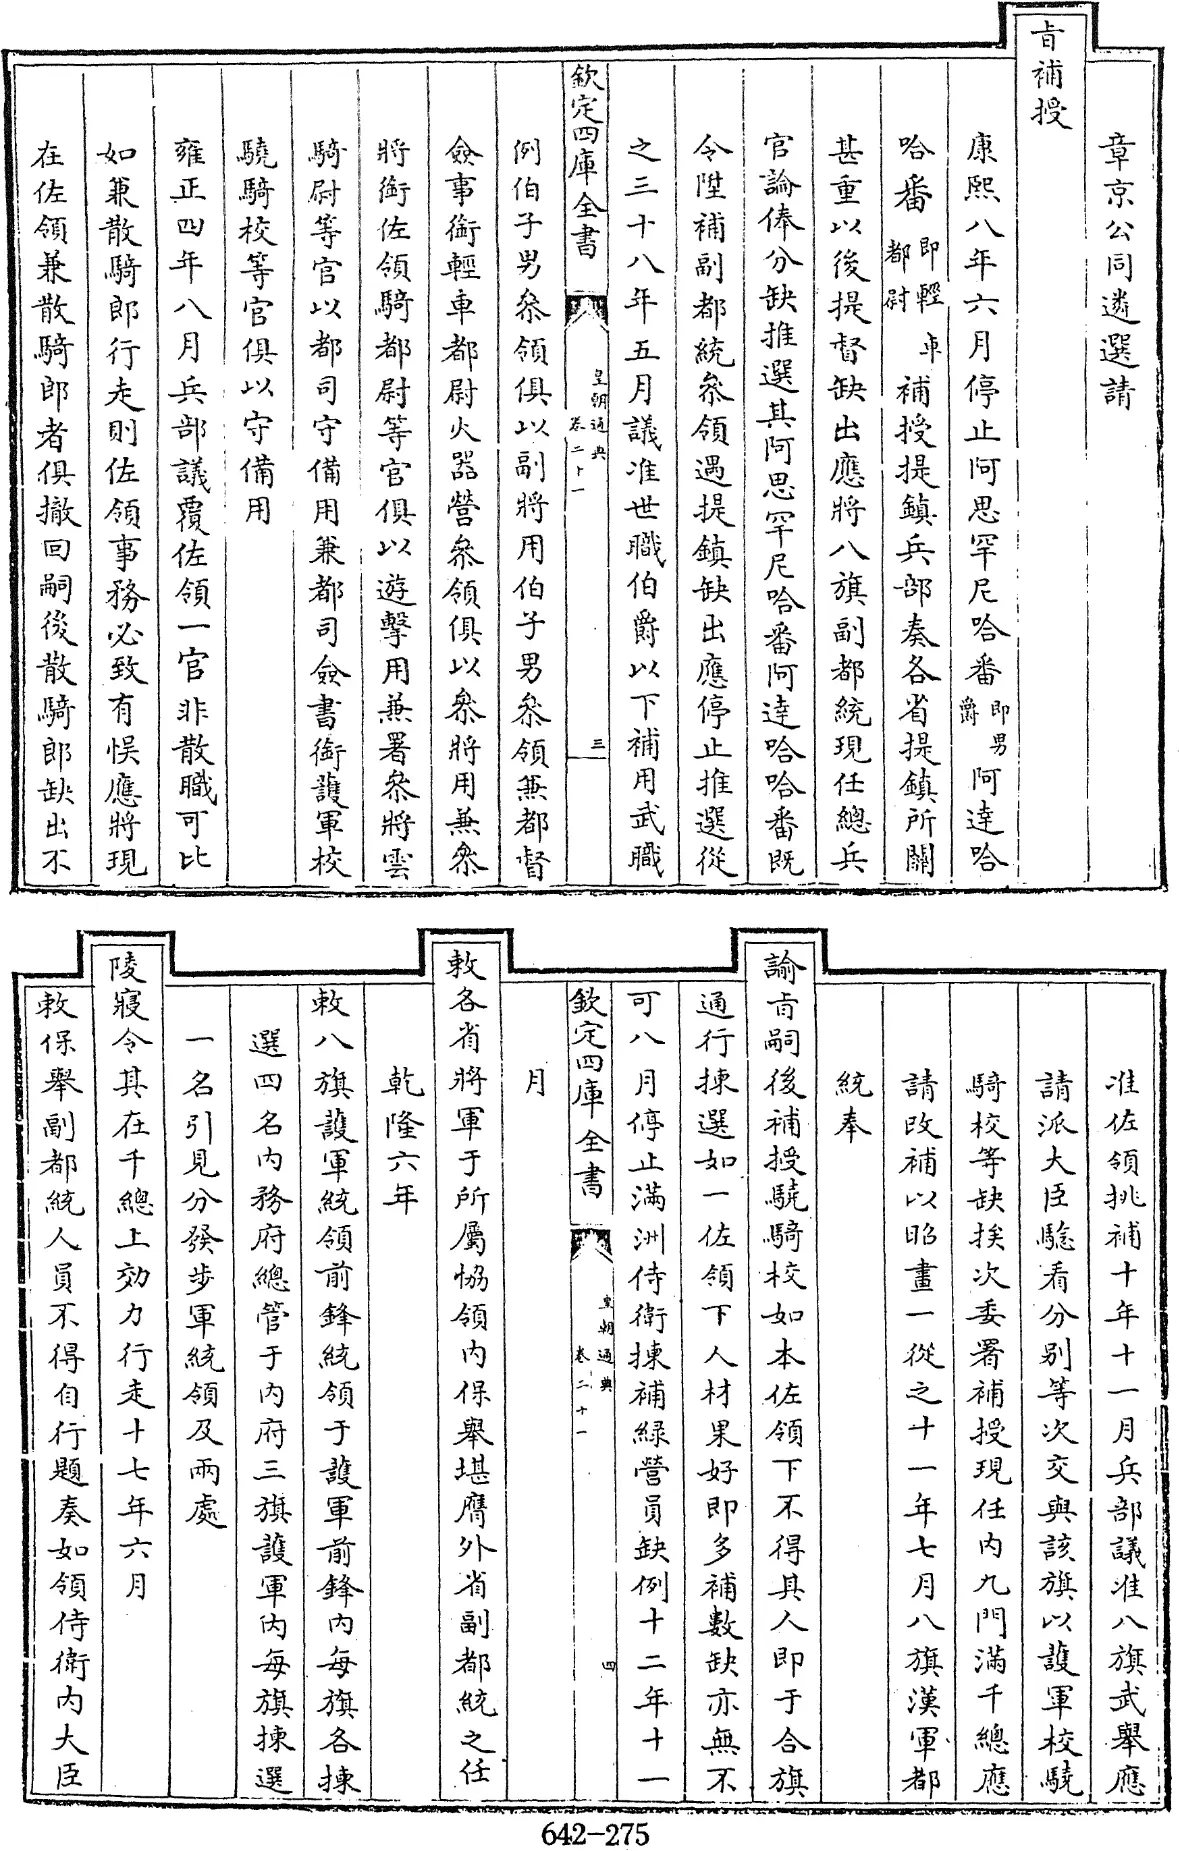 章京公同遴選請
旨補授
康熙八年六月停止阿思罕尼哈番即男爵阿達哈
哈番即輕車都尉補授提鎮兵部奏各省提鎮所關
甚重以後提督缺出應將八旗副都統現任總兵
官論俸分缺推選其阿思罕尼哈番阿達哈哈番既
令陞補副都統叅領遇提鎮缺出應停止推選從
之三十八年五月議准世職伯爵以下補用武職
欽定四庫全書
皇朝通典
卷二十一
三
例伯子男叅領俱以副將用伯子男叅領兼都督
僉事銜輕車都尉火器營叅領俱以叅將用兼叅
將銜佐領騎都尉等官俱以遊擊用兼署叅將雲
騎尉等官以都司守備用兼都司僉書銜護軍校
驍騎校等官俱以守備用
雍正四年八月兵部議覆佐領一官非散職可比
如兼散騎郎行走則佐領事務必致有悞應將現
在佐領兼散騎郎者俱撤回嗣後散騎郎缺出不
准佐領挑補十年十一月兵部議准八旗武舉應
請派大臣騐看分别等次交與該旗以護軍校驍
騎校等缺挨次委署補授現任内九門滿千總應
請改補以昭畫一從之十一年七月八旗漢軍都
統奉
諭旨嗣後補授驍騎校如本佐領下不得其人即于合旗
通行揀選如一佐領下人材果好即多補數缺亦無不
可八月停止滿洲侍衛揀補緑營員缺例十二年十一
欽定四庫全書
皇朝通典
卷二十一
四
月
敕各省將軍于所屬協領内保舉堪膺外省副都統之任
乾隆六年
敕八旗護軍統領前鋒統領于護軍前鋒内每旗各揀
選四名内務府總管于内府三旗護軍内每旗揀選
一名引見分發步軍統領及兩處
陵寢令其在千總上効力行走十七年六月
敕保舉副都統人員不得自行題奏如領侍衛内大臣
642-275